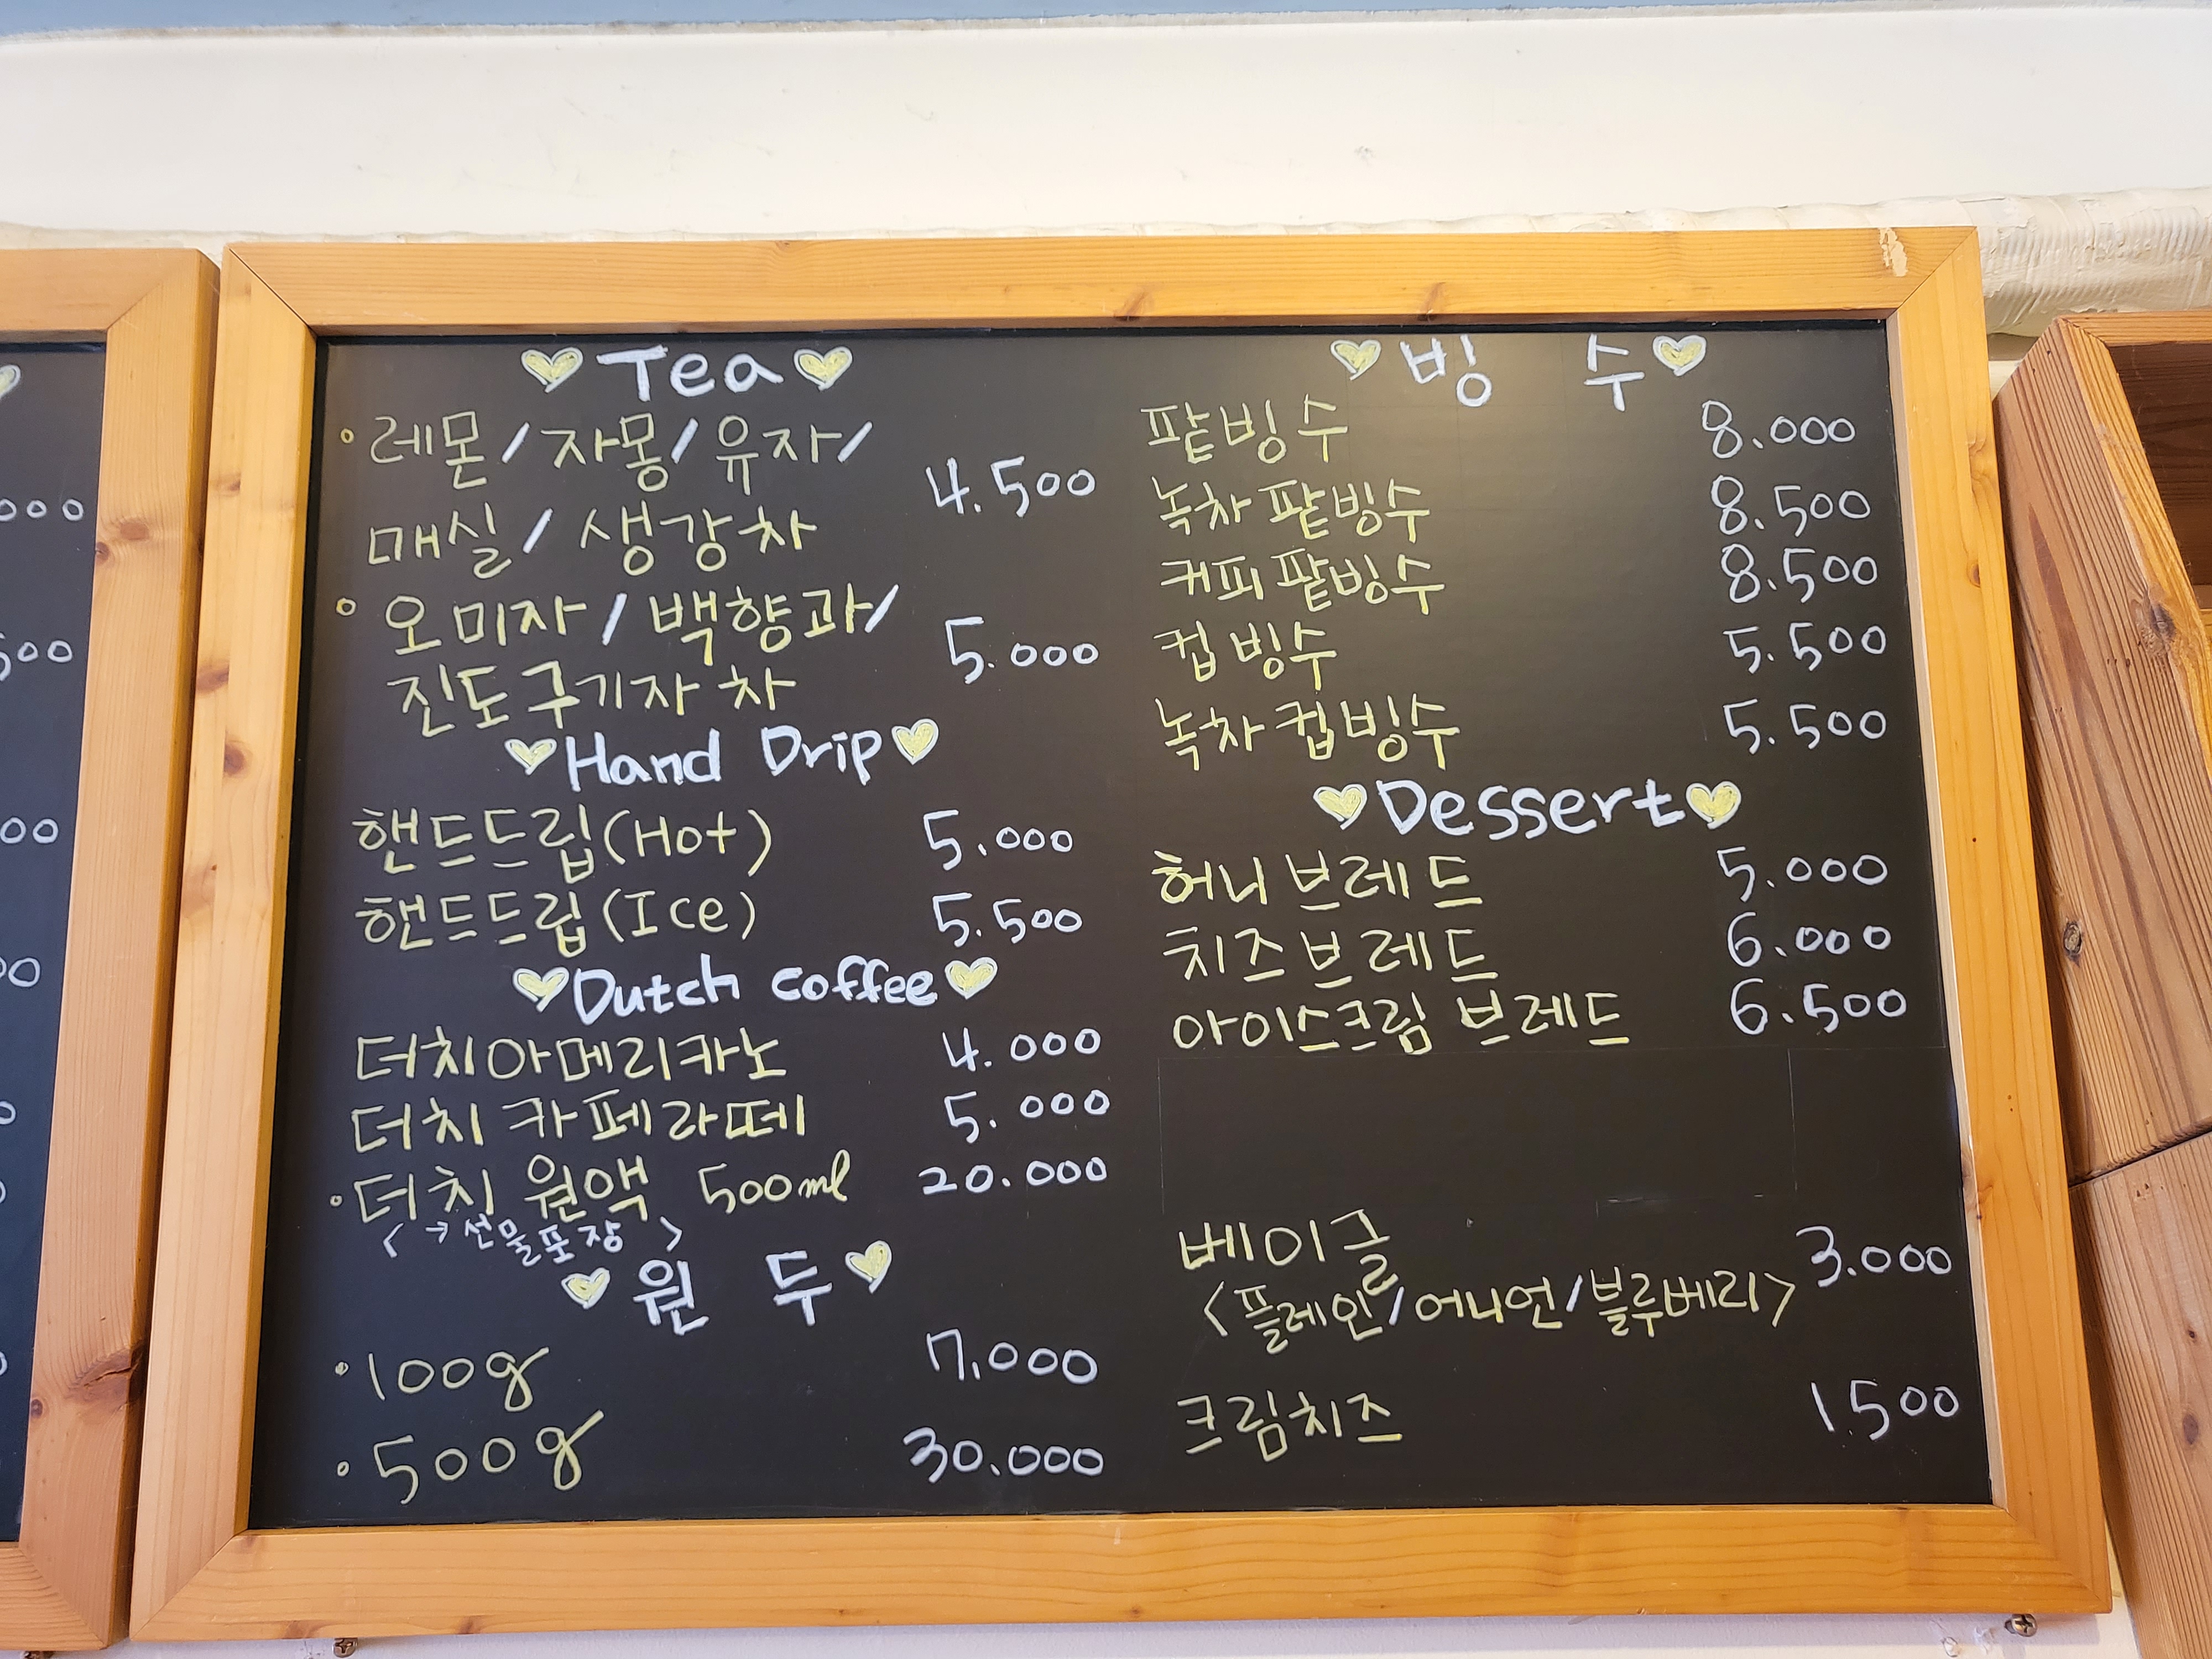 Tea
레몬/자몽/유자/
매실/생강차 4.500
오미자/백향과/
진도구기자 차 5.000
Hand Drip
핸드드립(Hot) 5.000
핸드드립(Ice) 5.500
Dutch coffee
더치아메리카노 4.000
더치 카페라떼 5.000
더치 원액 500ml 20.000
< → 선물포장 >
원 두
100g 7,000
500g 30.000
빙 수
팥빙수 8.000
녹차 팥빙수 8.500
커피 팥빙수 8.500
컵 빙수 5.500
녹차 컵빙수 5.500
Dessert
허니 브레드 5.000
치즈 브레드 6.000
아이스크림 브레드 6.500
베이글 3.000
<플레인/어니언/블루베리>
크림치즈 1500